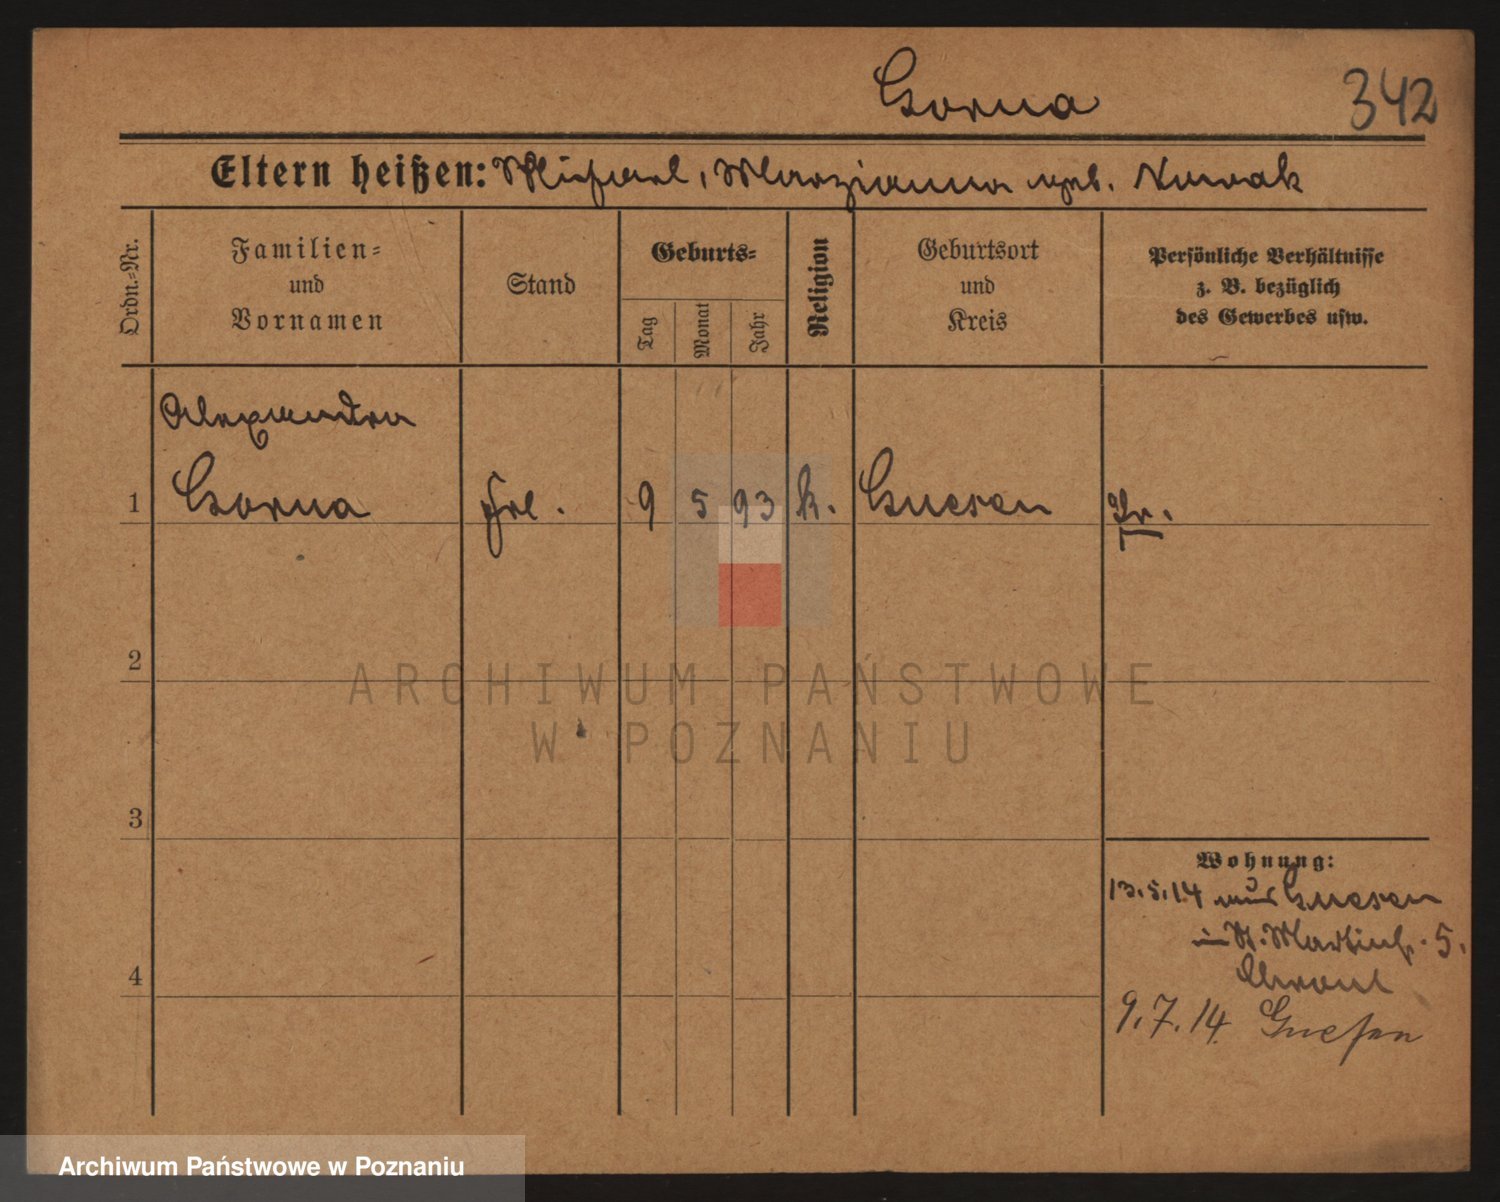 Gorna
342
Eltern heißen: Michael, Marzianna geb. Nowak
Ordn.-Nr.
Familien-
und
Vornamen
Stand
Geburts-
Tag
Monat
Jahr
Religion
Geburtsort
und
Kreis
Persönliche Verhältnisse
z. B. bezüglich
des Gewerbes usw.
Alexandra
1 Gorna Frl. 9 5 93 k. Gnesen Pr.
2
3
4
Wohnung:
13.5.14 aus Gnesen
in St. Martinstr. 5.
9.7.14 Gnesen
ARCHIWUM PAŃSTWOWE
W POZNANIU
Archiwum Państwowe w Poznaniu